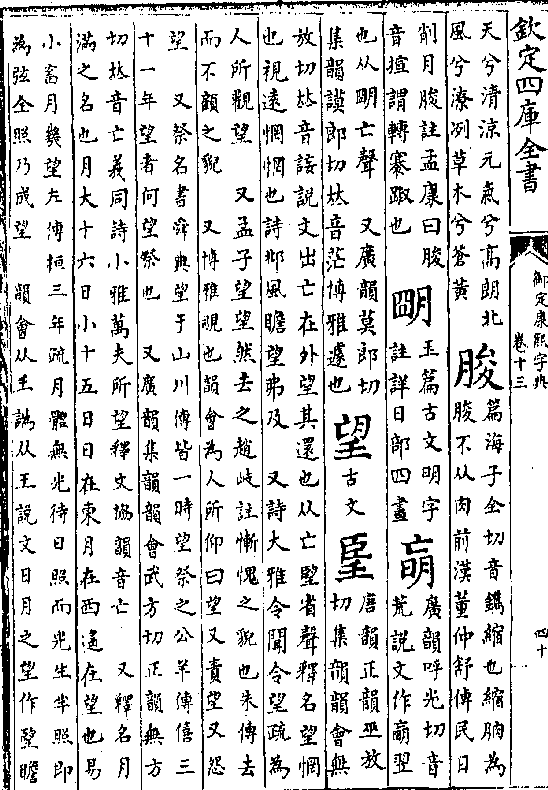 欽定四庫全書
御定康熙字典
卷十三
四十
天兮清涼元氣兮高朗北
風兮潦洌草木兮蒼黃
朘
篇海子全切音鐫縮也縮朒為
朘不从肉前漢董仲舒傳民日
削月朘註孟康曰朘
音揎謂轉蹇踧也
朙
玉篇古文明字
註詳日部四畫
朚
廣韻呼光切音
荒說文作㡃翌
也从朙亡聲　又廣韻莫郎切
集韻謨郎切𠀤音茫博雅遽也
望
古文
朢
唐韻正韻巫放
切集韻韻會無
放切𠀤音䛃說文出亡在外望其還也从亡朢省聲釋名望惘
也視遠惘惘也詩邶風瞻望弗及　又詩大雅令聞令望疏為
人所觀望　又孟子望望然去之趙岐註慚愧之貌也朱傳去
而不顧之貌　又博雅覗也韻會為人所仰曰望又責望又怨
望　又祭名書舜典望于山川傳皆一時望祭之公羊傳僖三
十一年望者何望祭也　又廣韻集韻韻會武方切正韻無方
切𠀤音亡義同詩小雅萬夫所望釋文協韻音亡　又釋名月
滿之名也月大十六日小十五日日在東月在西遙在望也易
小畜月幾望左傳桓三年疏月體無光待日照而光生半照即
為弦全照乃成望　韻會从𡈼譌从王說文日月之望作朢瞻